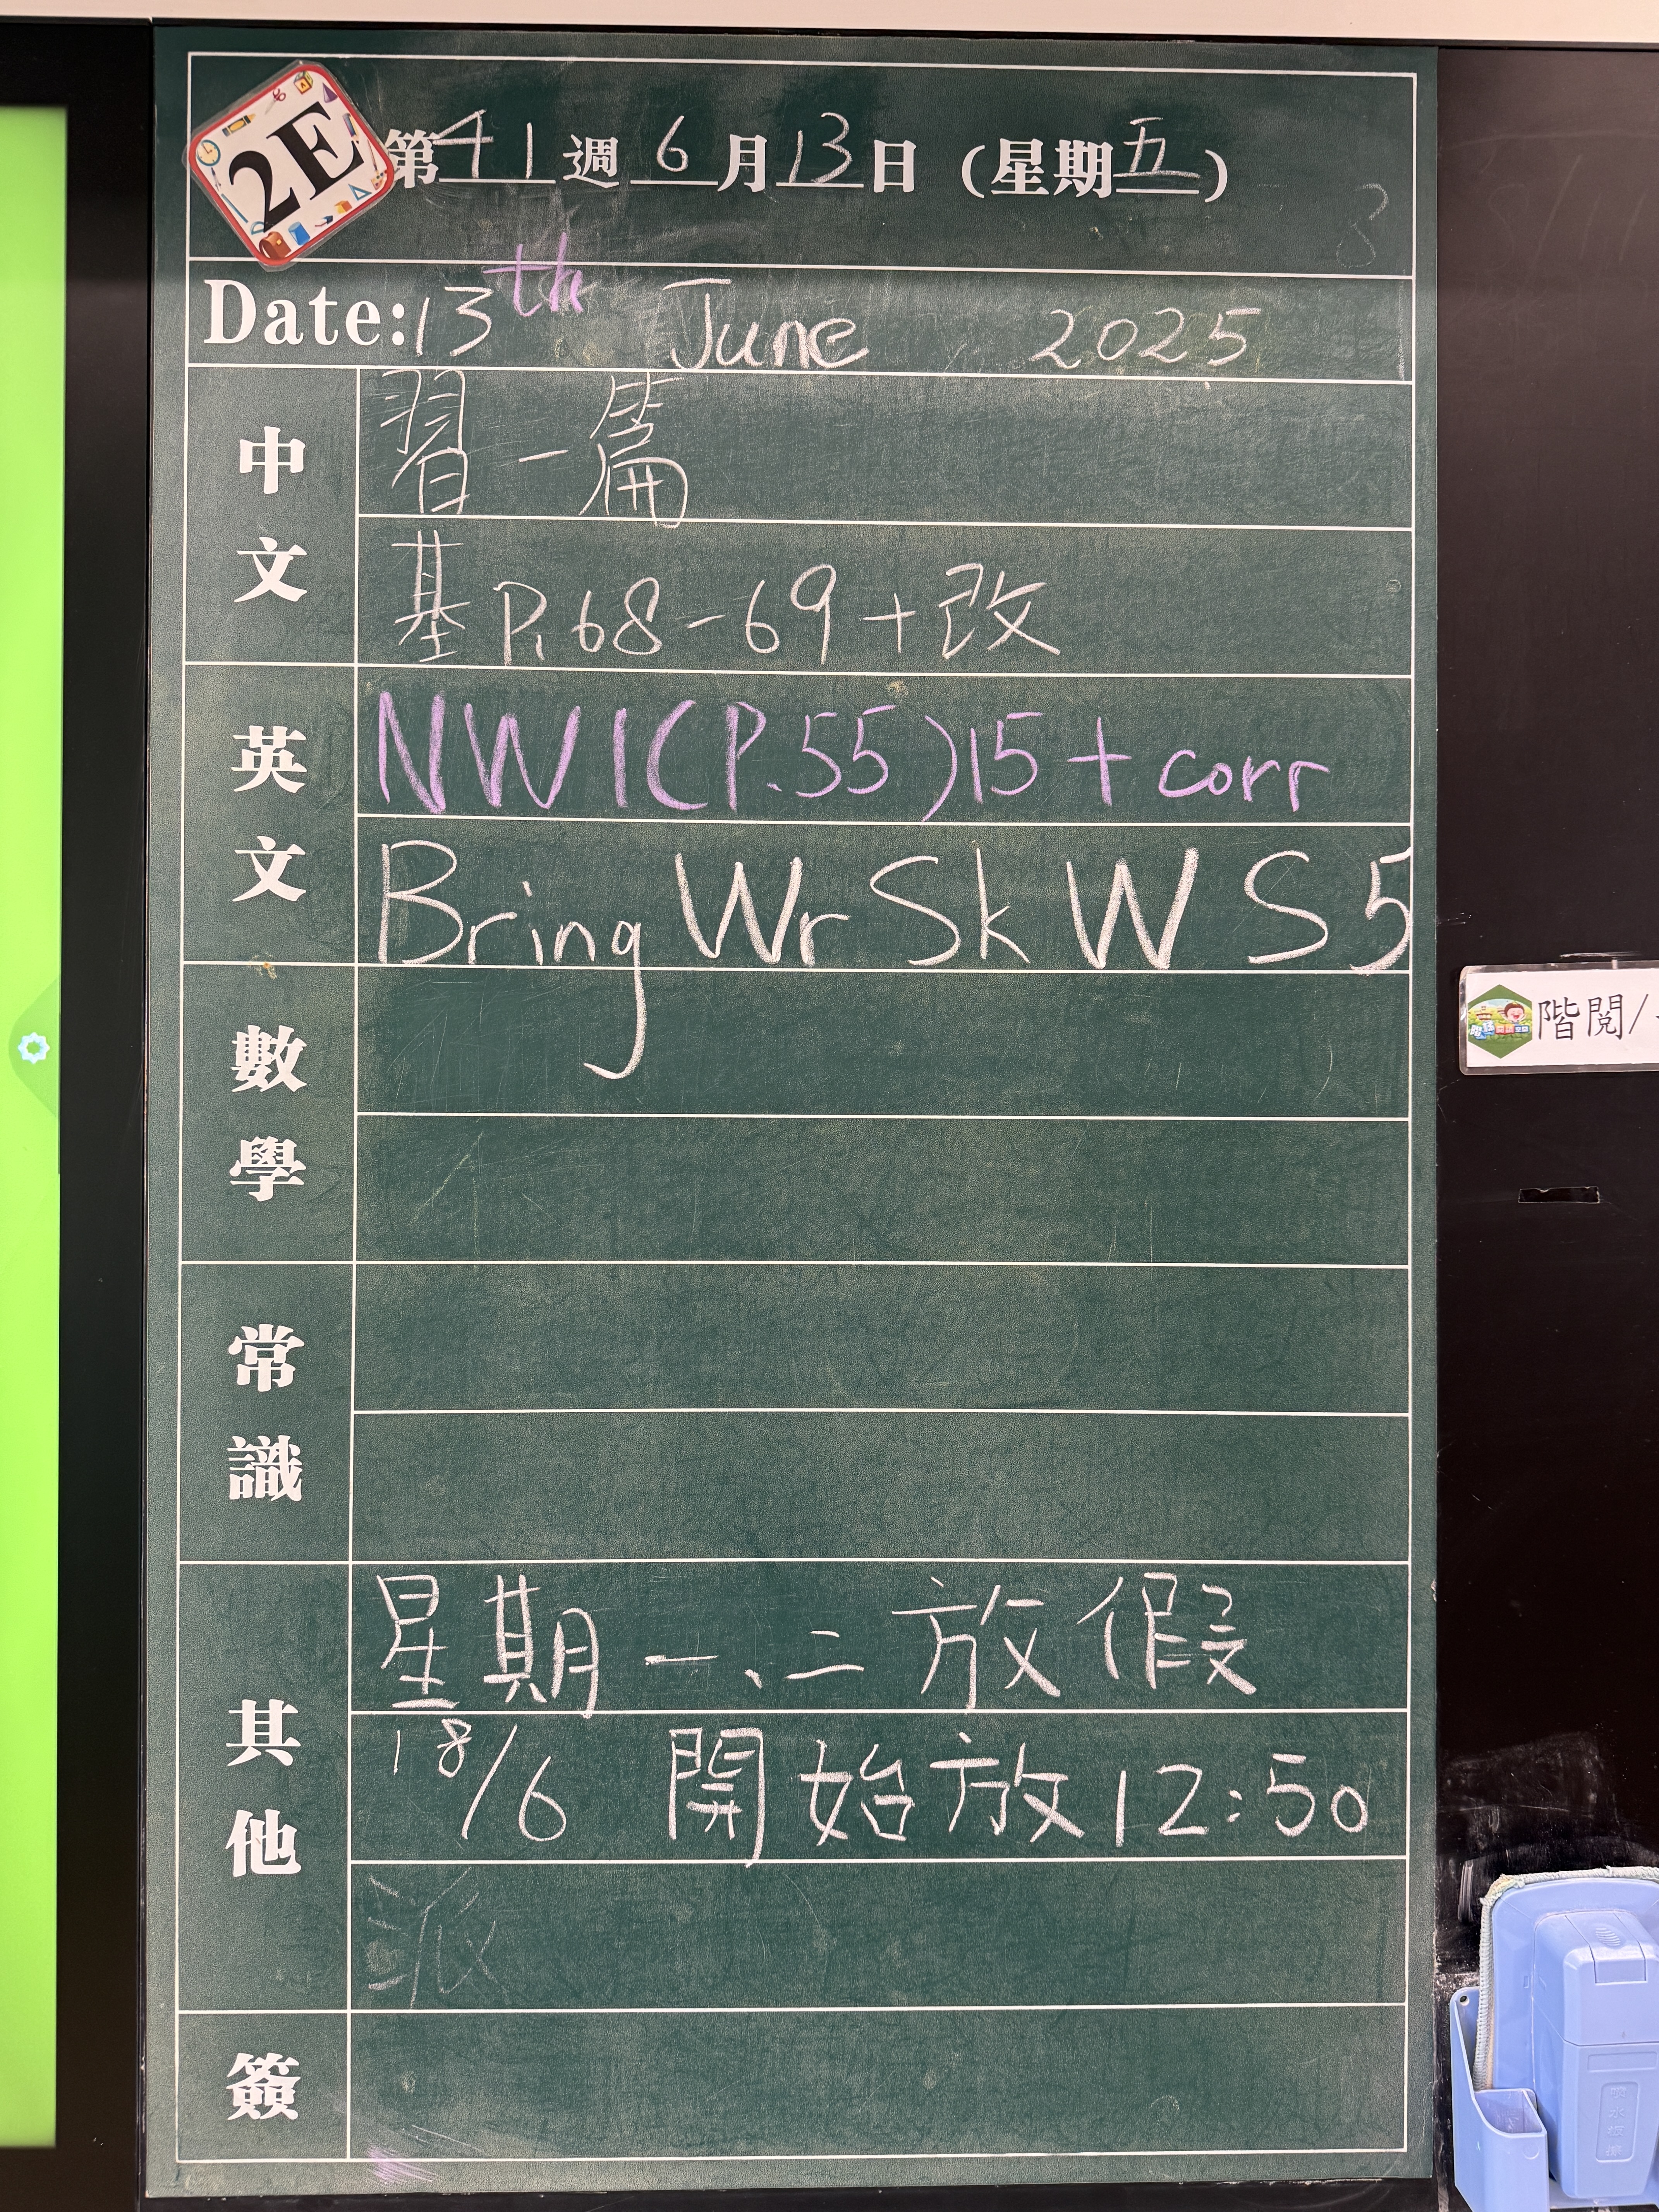 2E
第41週6月13日(星期五)
Date:13th June 2025
中文
習一篇
基P.68-69+改
英文
NW1(P.55)15+corr
Bring Wr Sk W S 5
數學
常識
其他
星期一、二放假
18/6 開始放12:50
派
簽
階閱/